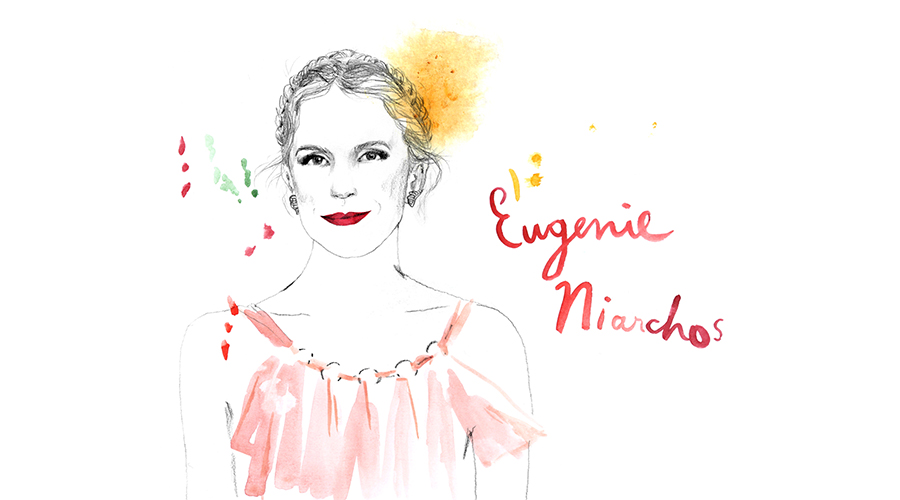 Eugenie
Niarchos